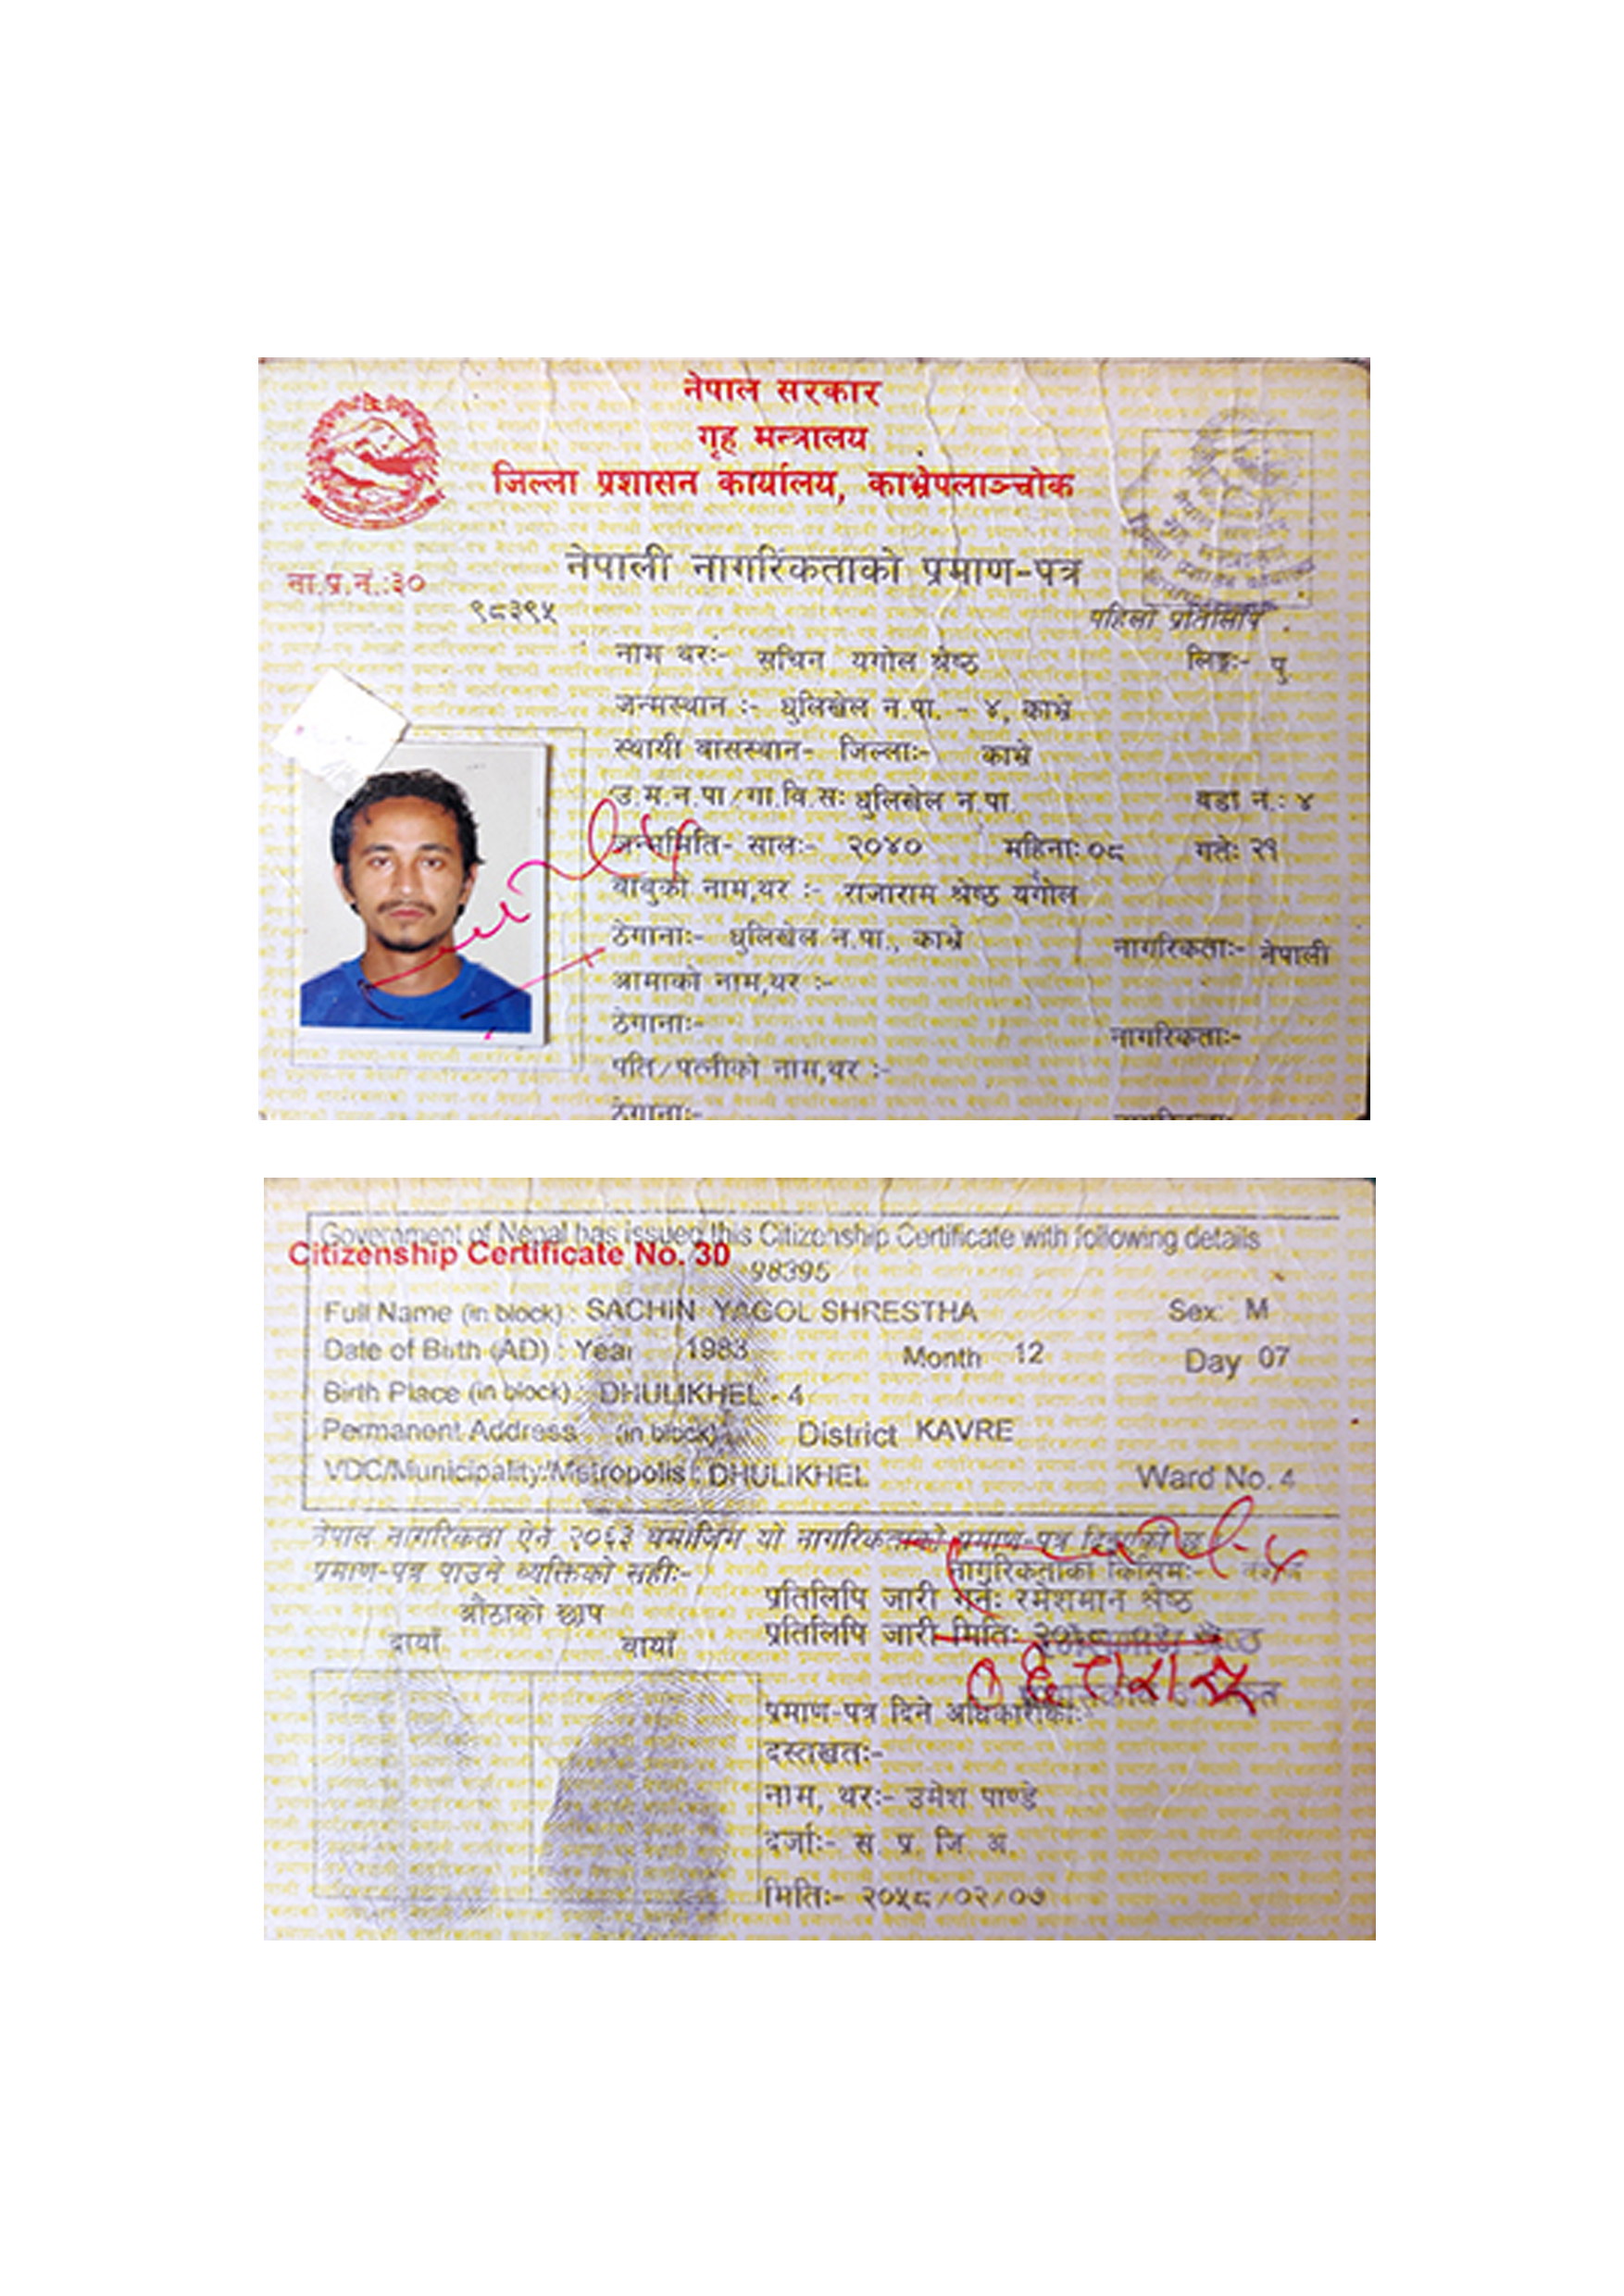 नेपाल सरकार
गृह मन्त्रालय
जिल्ला प्रशासन कार्यालय, काभ्रेपलाञ्चोक
नेपाली नागरिकताको प्रमाण-पत्र
ना.प्र.नं.:३०
९८३९५
पहिलो प्रतिलिपि
नाम थरः- सचिन यगोल श्रेष्ठ लिङ्गः- पु
जन्मस्थान :- धुलिखेल न.पा. - ४, काभ्रे
स्थायी वासस्थान- जिल्लाः- काभ्रे
उ.म.न.पा/गा.वि.सः धुलिखेल न.पा. वडा नं.: ४
जन्ममिति- सालः- २०४० महिनाः ०८ गतेः २१
बाबुको नाम,थर :- राजाराम श्रेष्ठ यगोल
ठेगानाः- धुलिखेल न.पा., काभ्रे नागरिकताः- नेपाली
आमाको नाम,थर :-
ठेगानाः- नागरिकताः-
पति/पत्नीको नाम,थर :-
ठेगानाः-
Government of Nepal has issued this Citizenship Certificate with following details
Citizenship Certificate No. 30
98395
Full Name (in block) : SACHIN YAGOL SHRESTHA Sex: M
Date of Birth (AD) : Year 1983 Month 12 Day 07
Birth Place (in block) : DHULIKHEL - 4
Permanent Address (in block) : District KAVRE
VDC/Municipality/Metropolis : DHULIKHEL Ward No. 4
नेपाल नागरिकता ऐन २०६३ बमोजिम यो नागरिकताको प्रमाण-पत्र दिइएको छ
प्रमाण-पत्र पाउने व्यक्तिको सहीः- नागरिकताको किसिमः-
औंठाको छाप प्रतिलिपि जारी गर्नेः रमेशमान श्रेष्ठ
दायाँ बायाँ प्रतिलिपि जारी मितिः
प्रमाण-पत्र दिने अधिकारीकोः
दस्तखतः-
नाम, थरः- उमेश पाण्डे
दर्जाः- स. प्र. जि. अ.
मितिः- २०५८/०२/०७